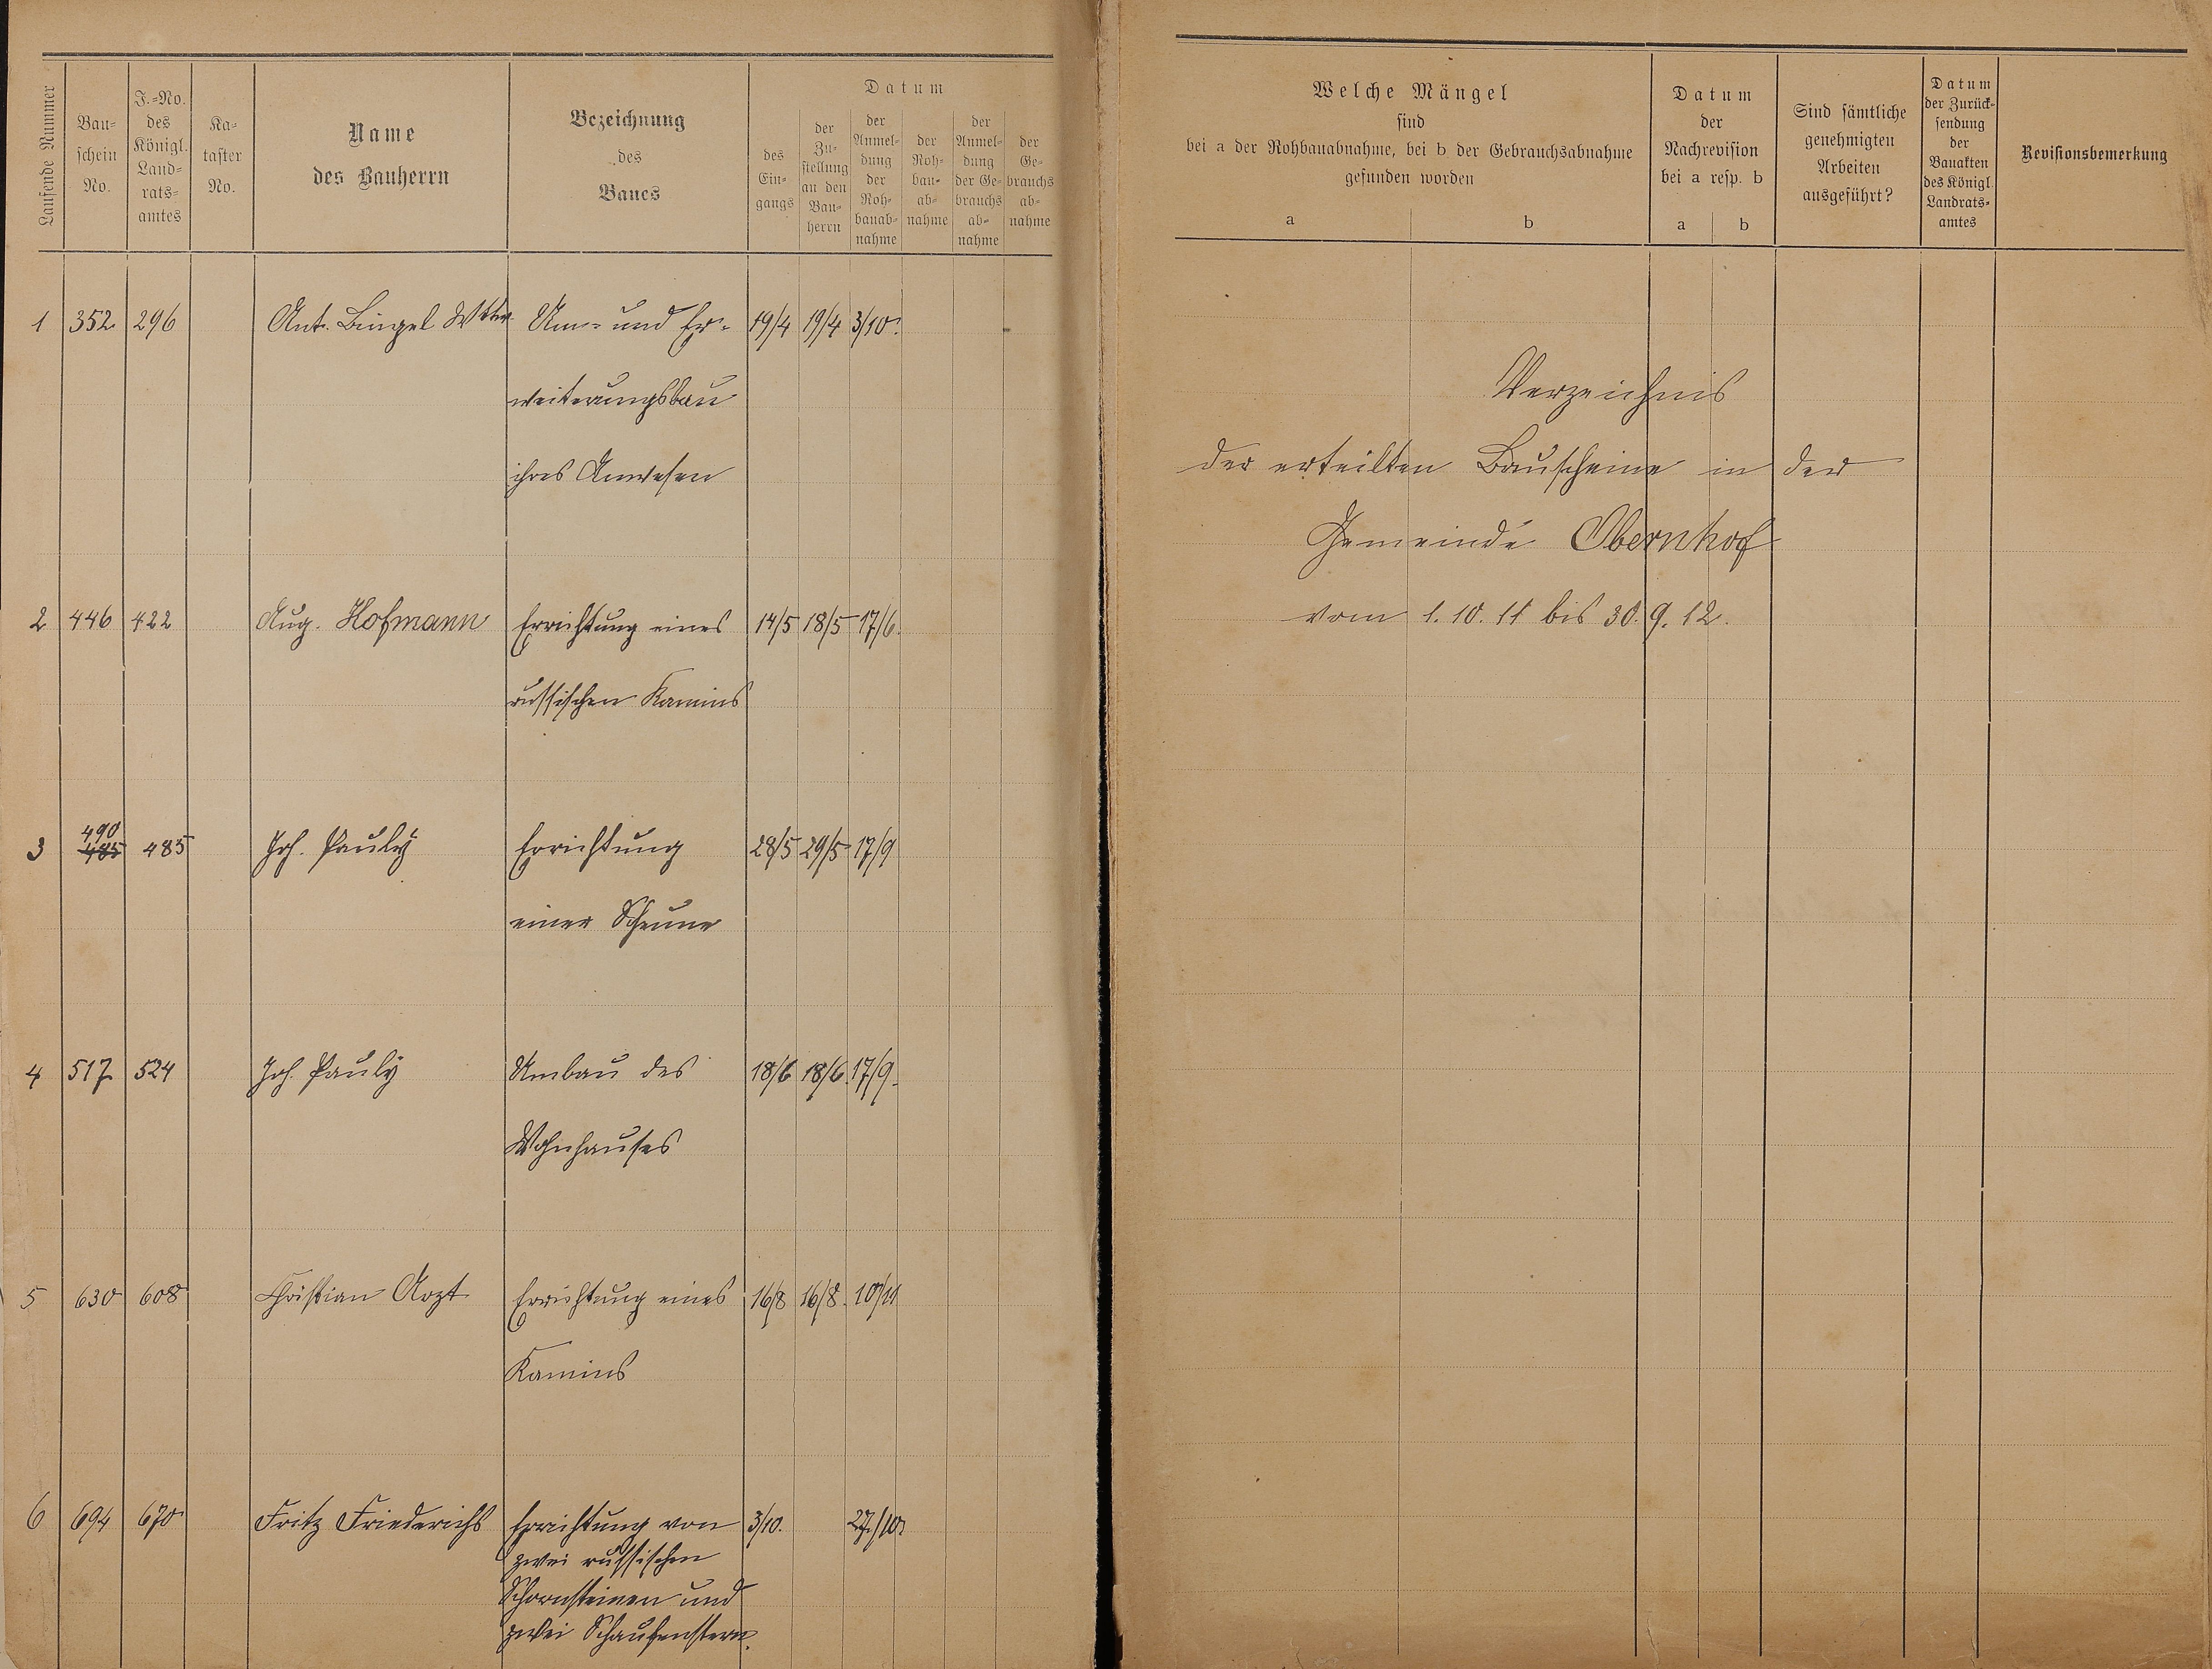 Laufende Nummer
Bau-
schein
No.
J.-No.
des
Königl.
Land-
rats-
amtes
Ka-
taster
No.
Name
des Bauherrn
Bezeichnung
des
Baues
Datum
des
Ein-
gangs
der
Zu-
stellung
an den
Bau-
herrn
der
Anmel-
dung
der
Roh-
bauab-
nahme
der
Roh-
bau-
ab-
nahme
der
Anmel-
dung
der Ge-
brauchs
ab-
nahme
der
Ge-
brauchs
ab-
nahme
1 352 296 Ant. Bingel Wtw. Um- und Er- 19/4 19/4 3/10.
weiterungsbau
ihres Anwesen
2 446 422 Aug. Hofmann Errichtung eines 14/5 18/5 17/6.
russischen Kamins
490
3 485 485 Joh. Pauly Errichtung 28/5 29/5 17/9
einer Scheune
4 517 524 Joh. Pauly Umbau des 18/6 18/6. 17/9.
Wohnhauses
5 630 608 Christian Arzt Errichtung eines 16/8 16/8. 10/11
Kamins
6 694 670 Fritz Friederichs Errichtung von 3/10. 27./10.
zwei russischen
Schornsteinen und
zwei Schaufenstern.
Welche Mängel
sind
bei a der Rohbauabnahme, bei b der Gebrauchsabnahme
gefunden worden
a b
Datum
der
Nachrevision
bei a resp. b
a b
Sind sämtliche
genehmigten
Arbeiten
ausgeführt?
Datum
der Zurück-
sendung
der
Bauakten
des Königl.
Landrats-
amtes
Revisionsbemerkung
Verzeichnis
der erteilten Bauscheine in der
Gemeinde Obernhof
vom 1.10.11 bis 30.9.12.